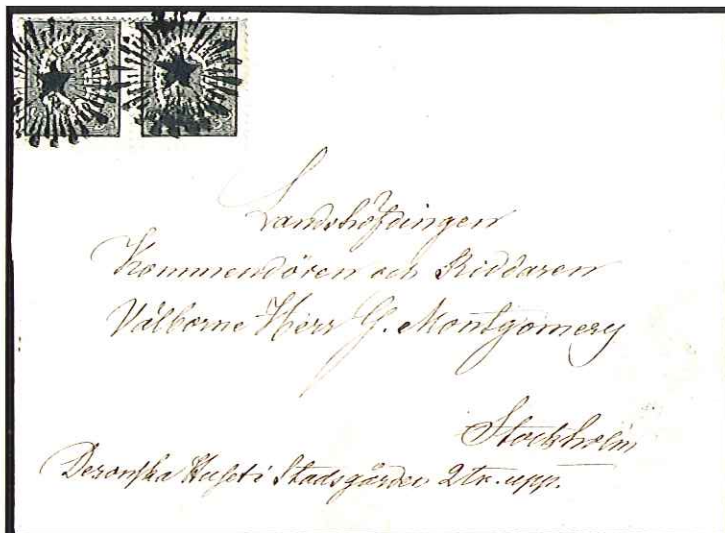 Landshöfdingen
Kommendören och Riddaren
Välborne Herr G. Montgomery
Stockholm
Huset i Stadsgården 2 tr. upp.